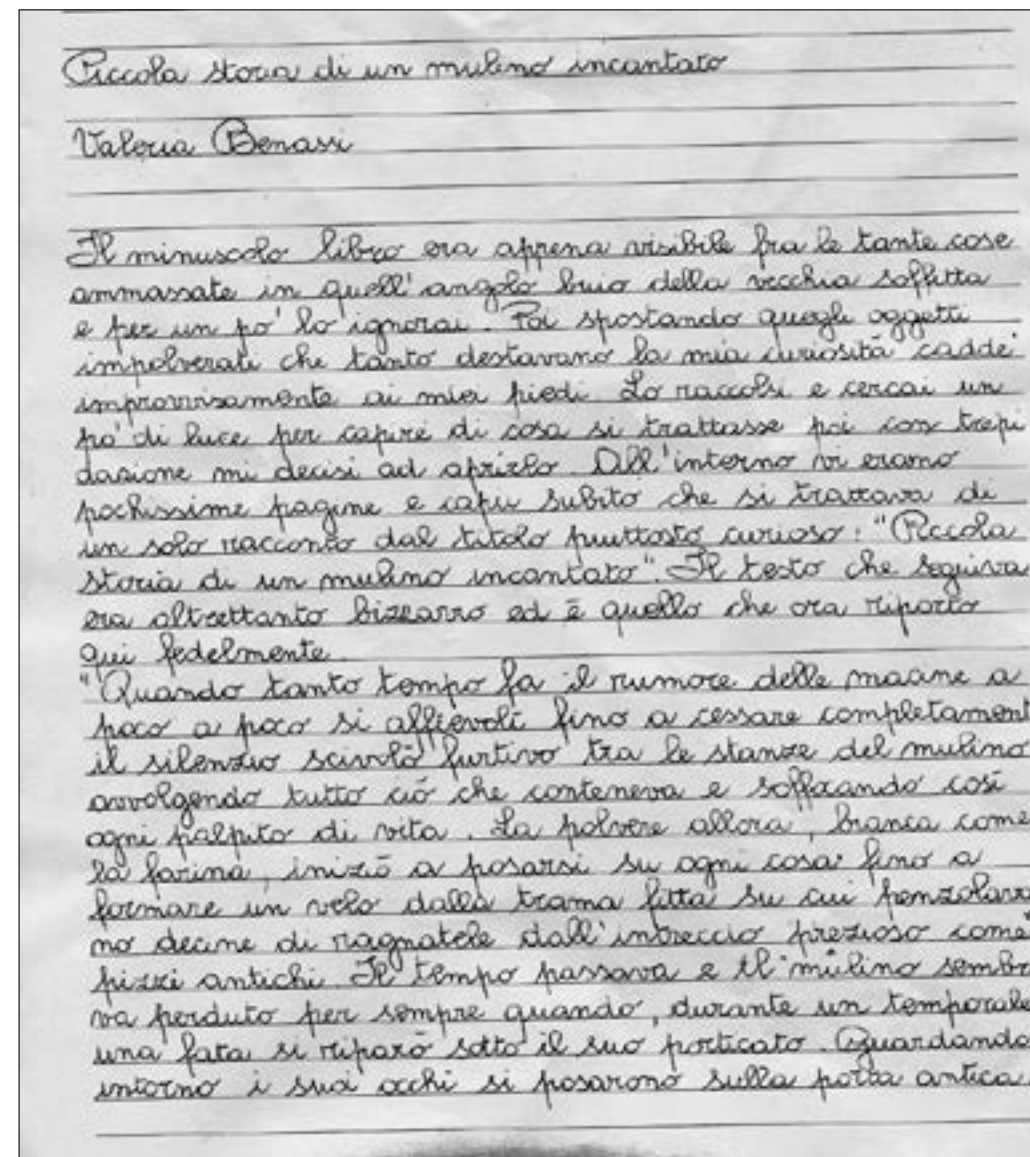 Piccola storia di un mulino incantato
Valeria Benassi
Il minuscolo libro era appena visibile fra le tante cose
ammassate in quell'angolo buio della vecchia soffitta
e per un po' lo ignorai. Poi spostando quegli oggetti
impolverati che tanto destavano la mia curiosità cadde
improvvisamente ai miei piedi. Lo raccolsi e cercai un
po' di luce per capire di cosa si trattasse poi con trepi
dazione mi decisi ad aprirlo. All'interno vi erano
pochissime pagine e capii subito che si trattava di
un solo racconto dal titolo piuttosto curioso: "Piccola
storia di un mulino incantato". Il testo che seguiva
era altrettanto bizzarro ed è quello che ora riporto
qui fedelmente.
"Quando tanto tempo fa il rumore delle macine a
poco a poco si affievolì fino a cessare completament
il silenzio scivolò furtivo tra le stanze del mulino
avvolgendo tutto ciò che conteneva e soffocando così
ogni palpito di vita. La polvere allora, bianca come
la farina, iniziò a posarsi su ogni cosa fino a
formare un velo dalla trama fitta su cui penzolava
no decine di ragnatele dall'intreccio prezioso come
pizzi antichi. Il tempo passava e il mulino sembra
va perduto per sempre quando, durante un temporale
una fata si riparò sotto il suo porticato. Guardando
intorno i suoi occhi si posarono sulla porta antica